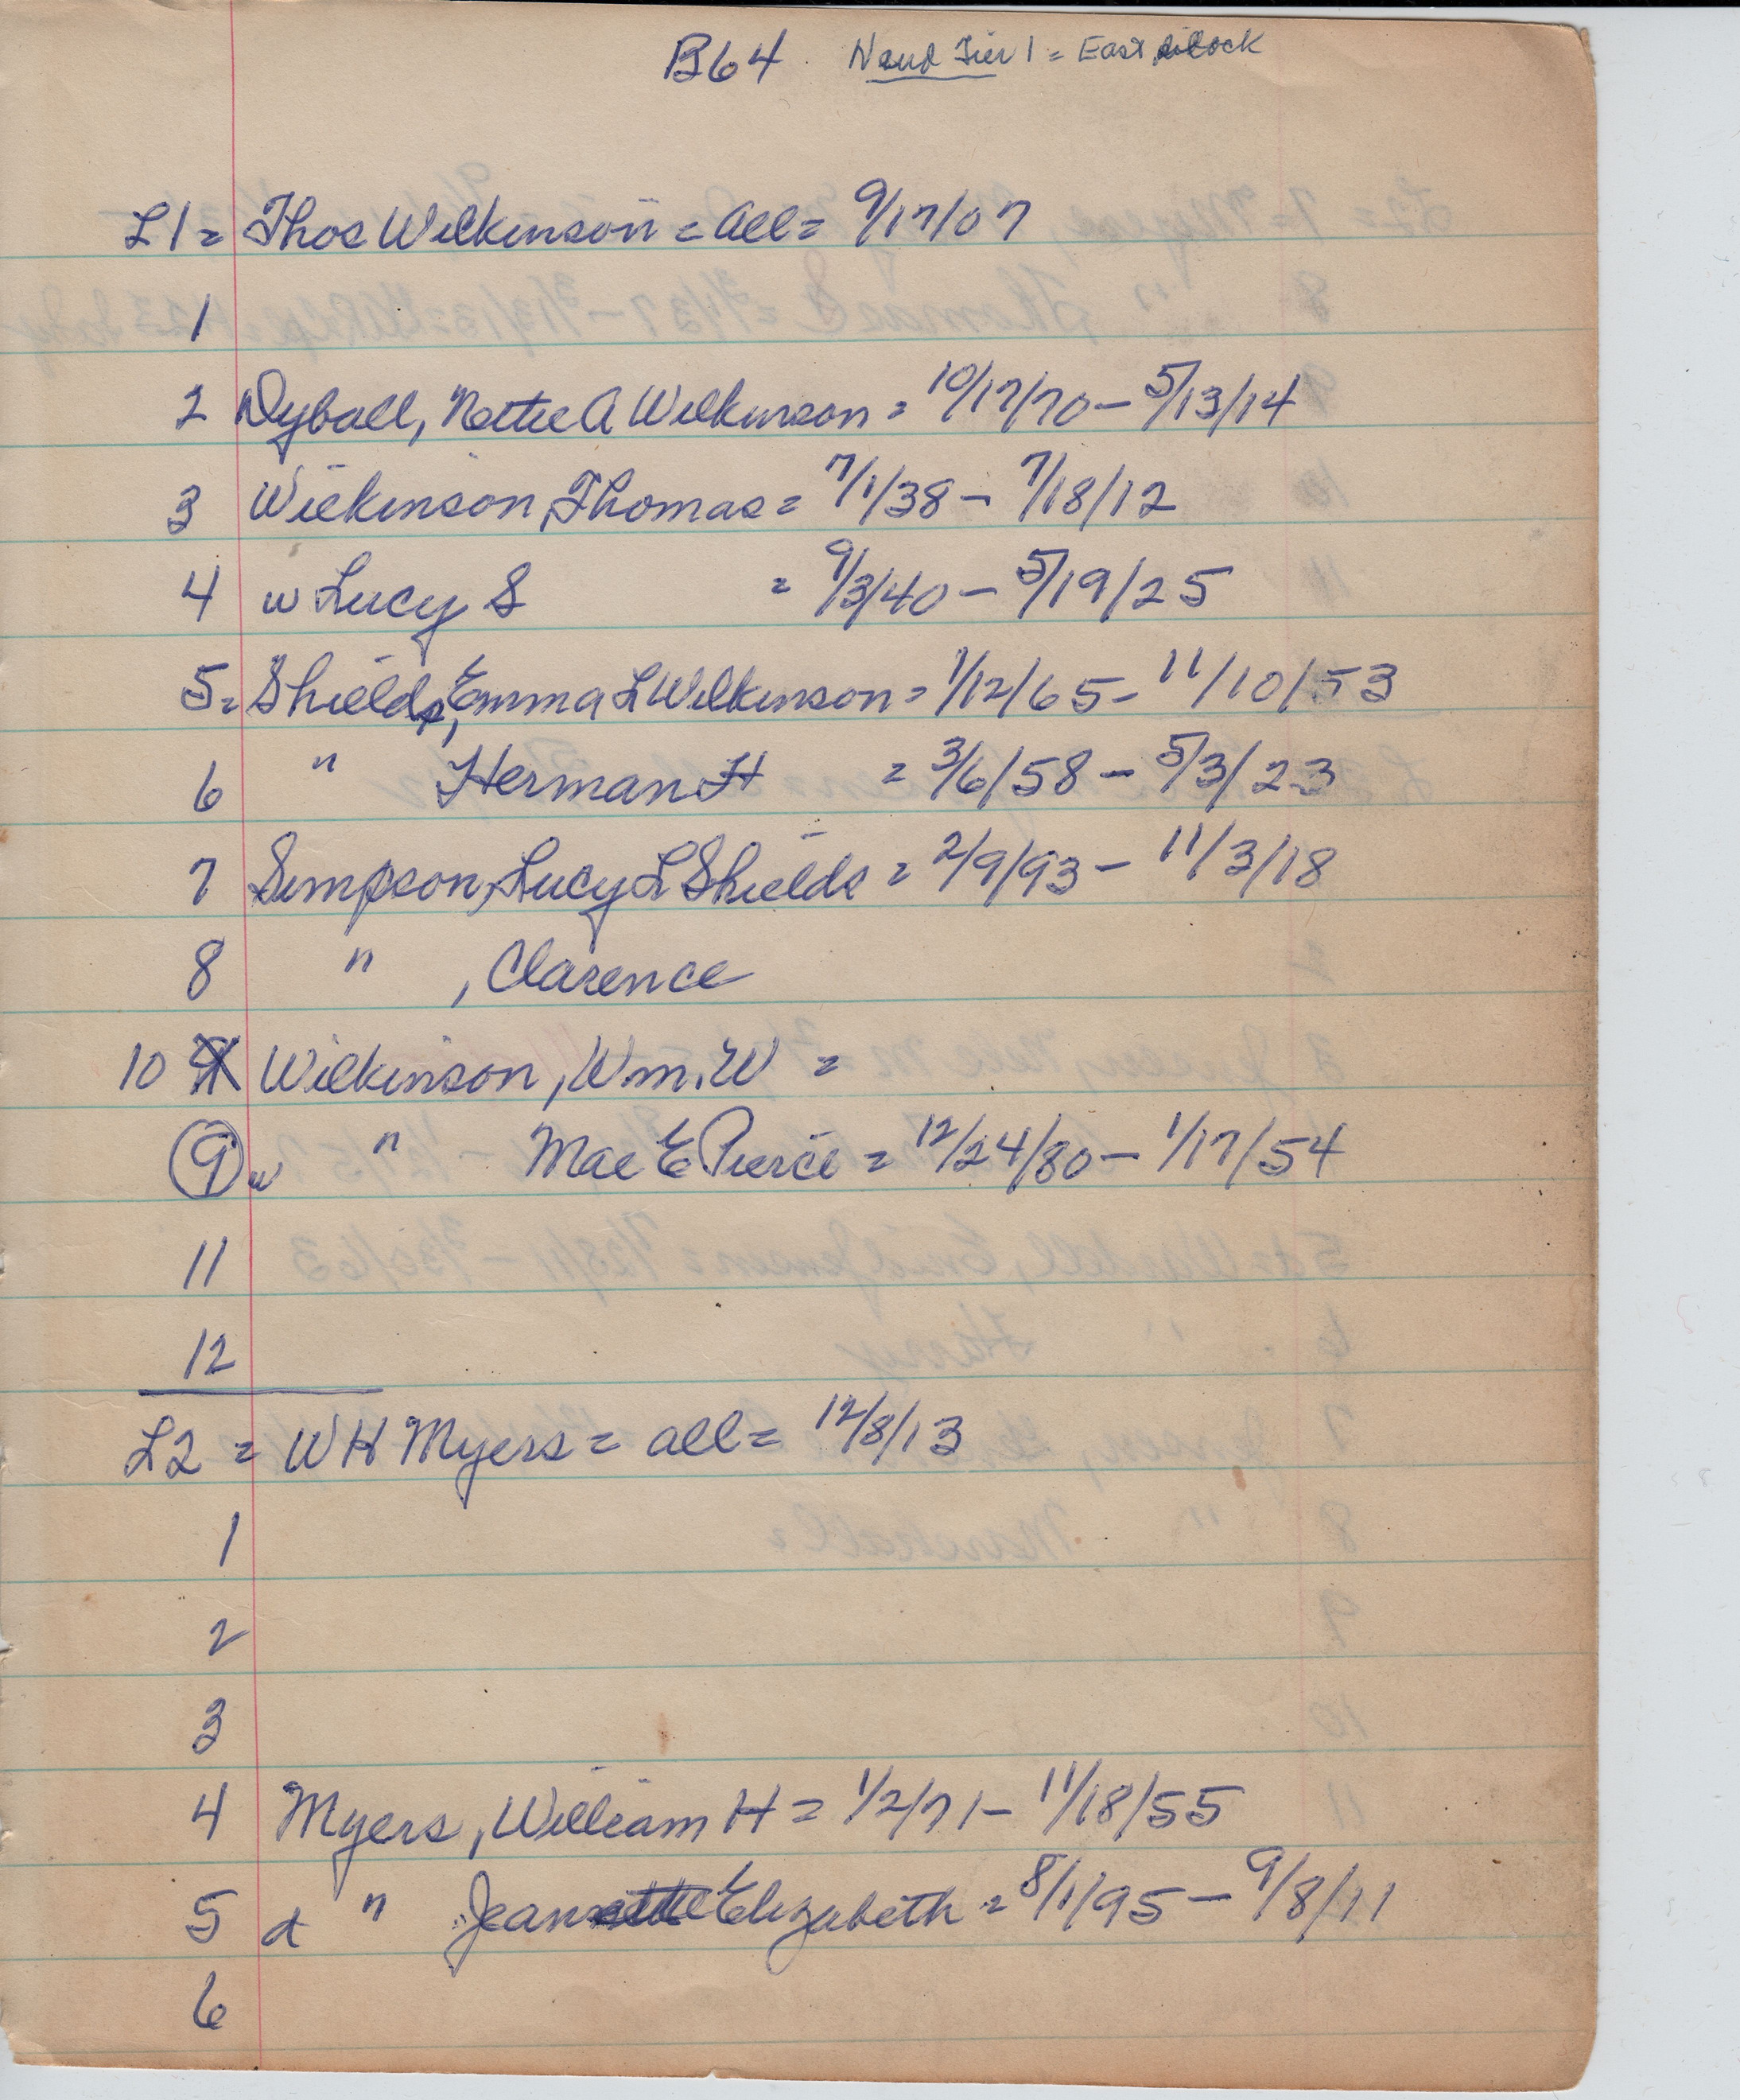 B64 N end Tier 1 = East block
L1 = Thos Wilkinson = all = 9/17/07
1
2 Dyball, Nettie A Wilkinson = 10/17/70 - 5/13/14
3 Wilkinson, Thomas = 7/1/38 - 7/18/12
4 w Lucy S = 9/3/40 - 5/19/25
5 = Shields, Emma L Wilkinson = 1/12/65 - 11/10/53
6 " Herman H = 3/6/58 - 5/3/23
7 Simpson, Lucy L Shields = 2/9/93 - 11/3/18
8 " , Clarence
10 Wilkinson, Wm. W =
9 w " Mae E Pierce = 12/24/80 - 1/17/54
11
12
L2 = W H Myers = all = 12/8/13
1
2
3
4 Myers, William H = 1/2/71 - 11/18/55
5 d " Jean Elizabeth = 8/1/95 - 9/8/11
6